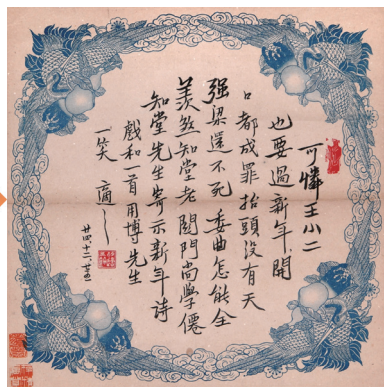 可憐王小二
也要過新年開
口都成罪抬頭沒有天
强梁還不死委曲怎能全
羨煞知堂老關門尚學僊
知堂先生寄示新年詩
戲和一首用博先生
一笑 適之
廿四十二廿五